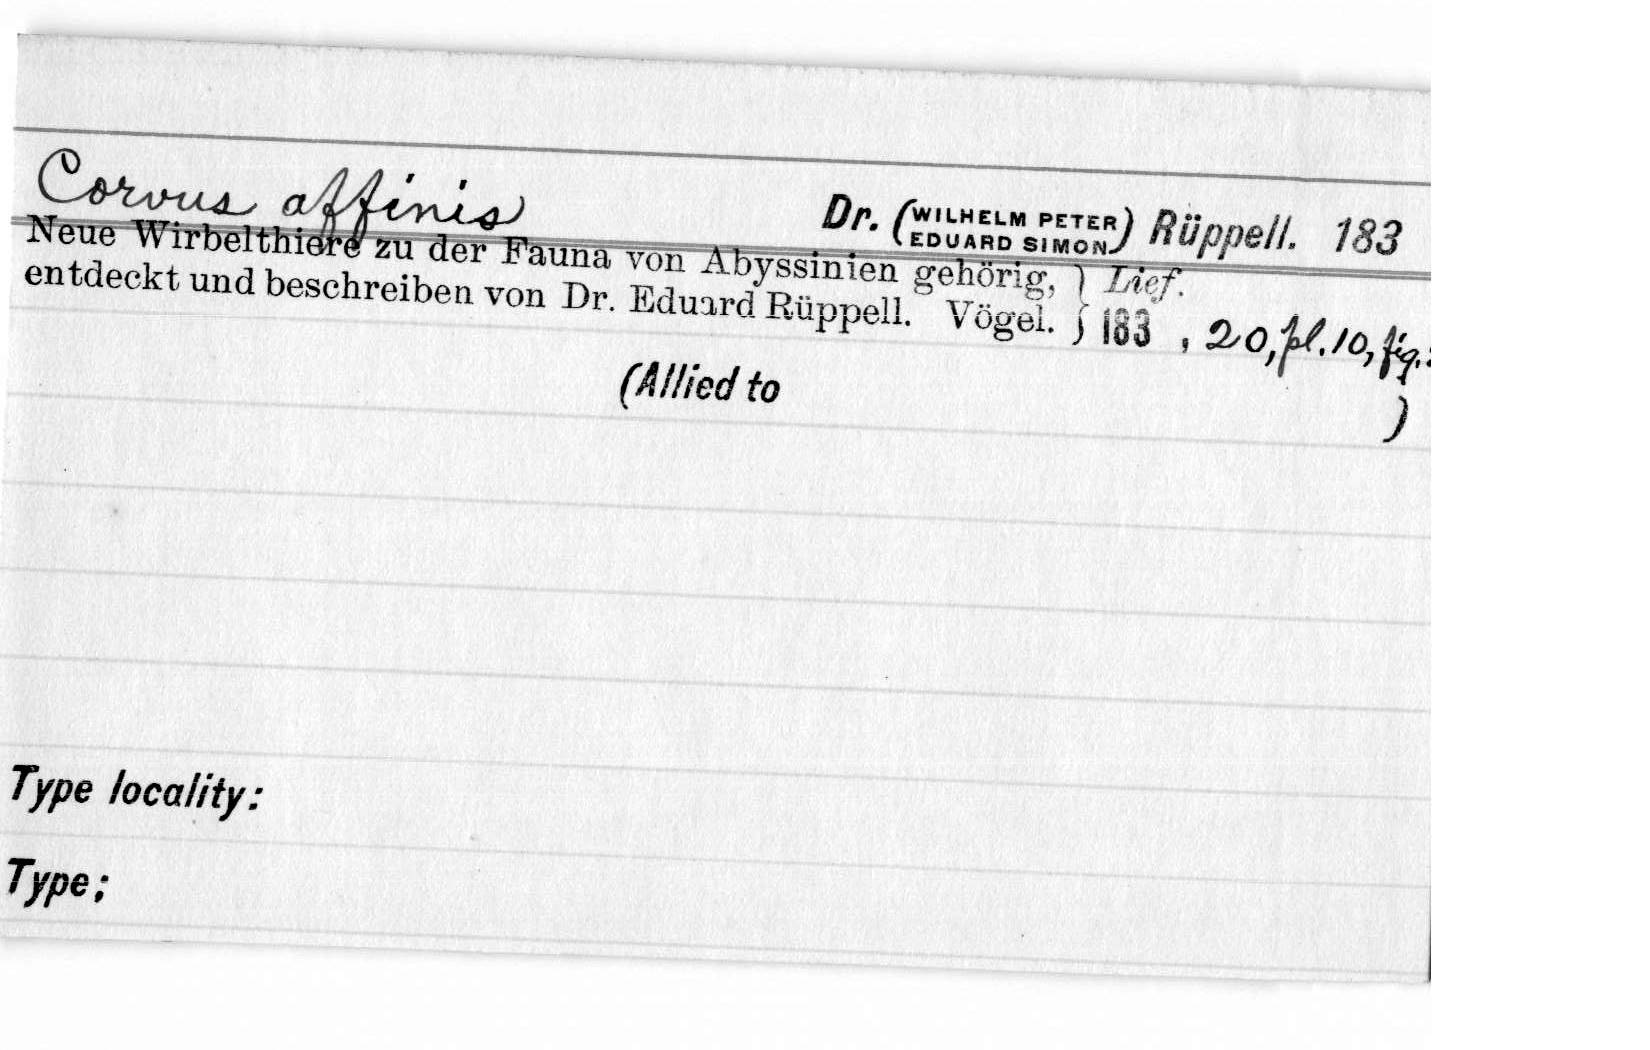 Corvus affinis Dr. (WILHELM PETER EDUARD SIMON) Rüppell. 183
Neue Wirbelthiere zu der Fauna von Abyssinien gehörig, } Lief.
entdeckt und beschreiben von Dr. Eduard Rüppell. Vögel. } 183 , 20, pl. 10, fig.
(Allied to )
Type locality:
Type;